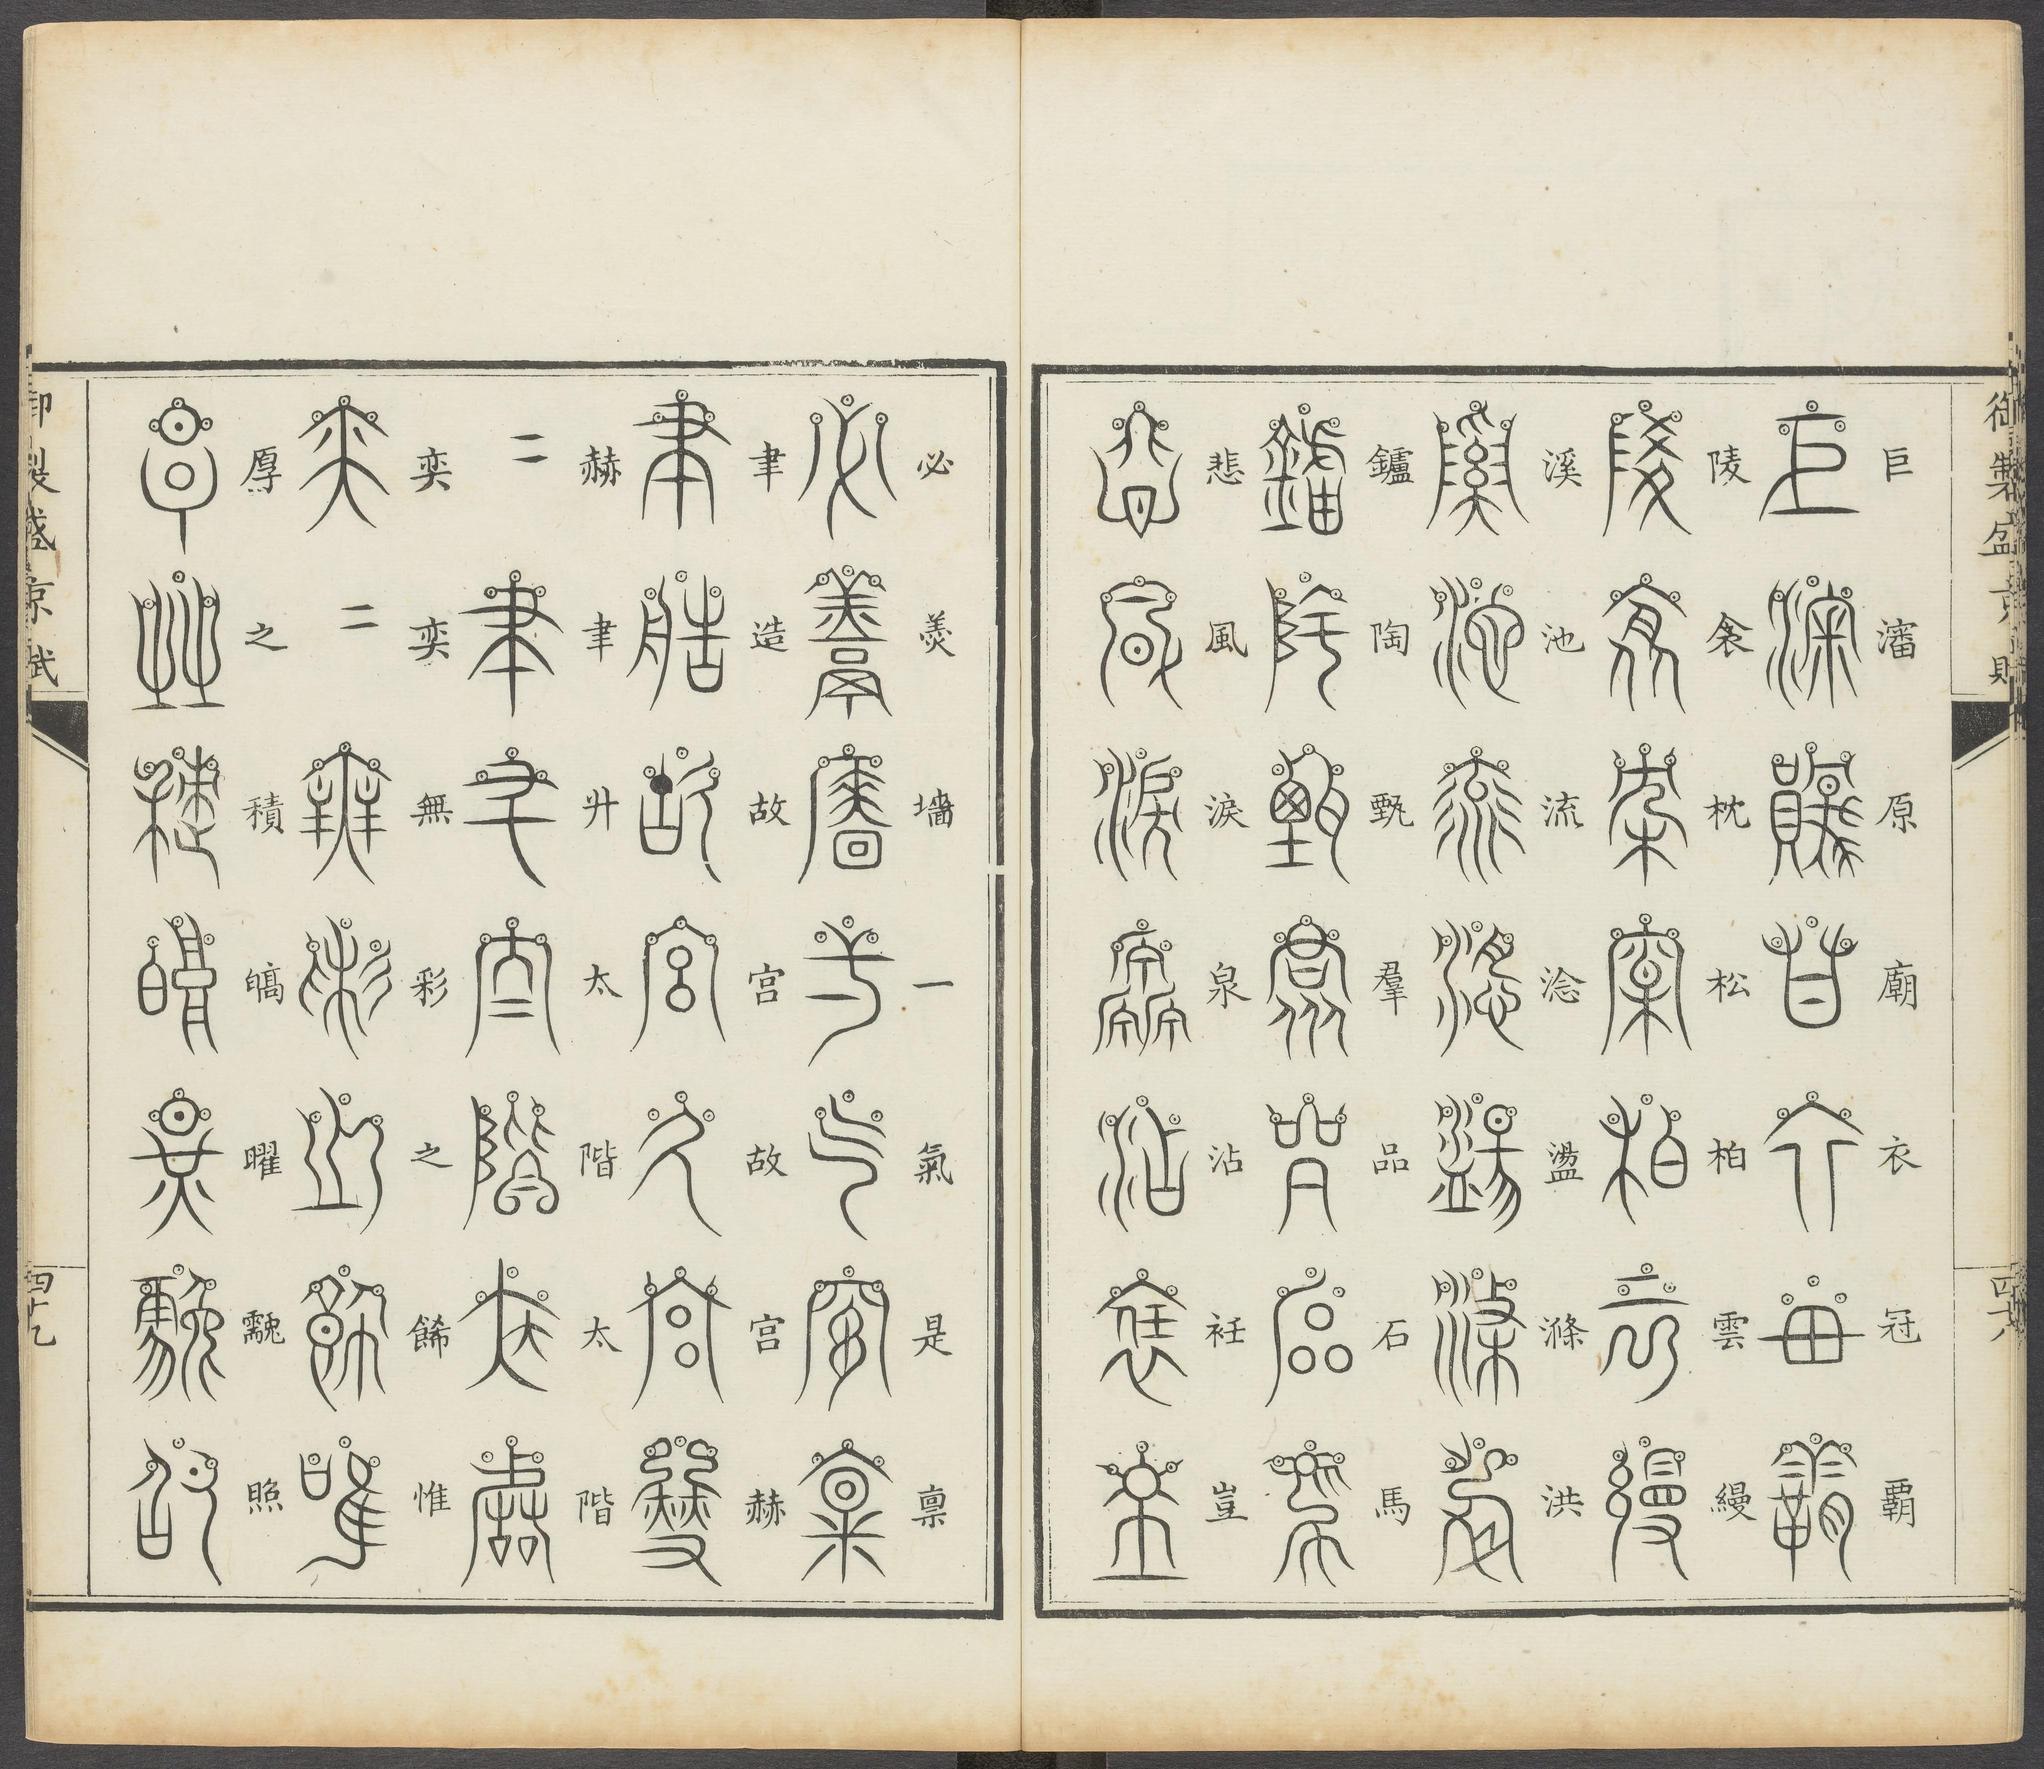 御製盛京賦
巨瀋原廟衣冠霸
陵衾枕松柏雲縵
溪池流淰盪滌洪
鑪陶甄羣品石馬
悲風淚泉沾衽豈
必羹墻一氣是禀
聿造故宮故宮赫
赫聿爿太階太階
奕奕無彩之餙惟
厚之積皜曜䨴照
御製盛京賦